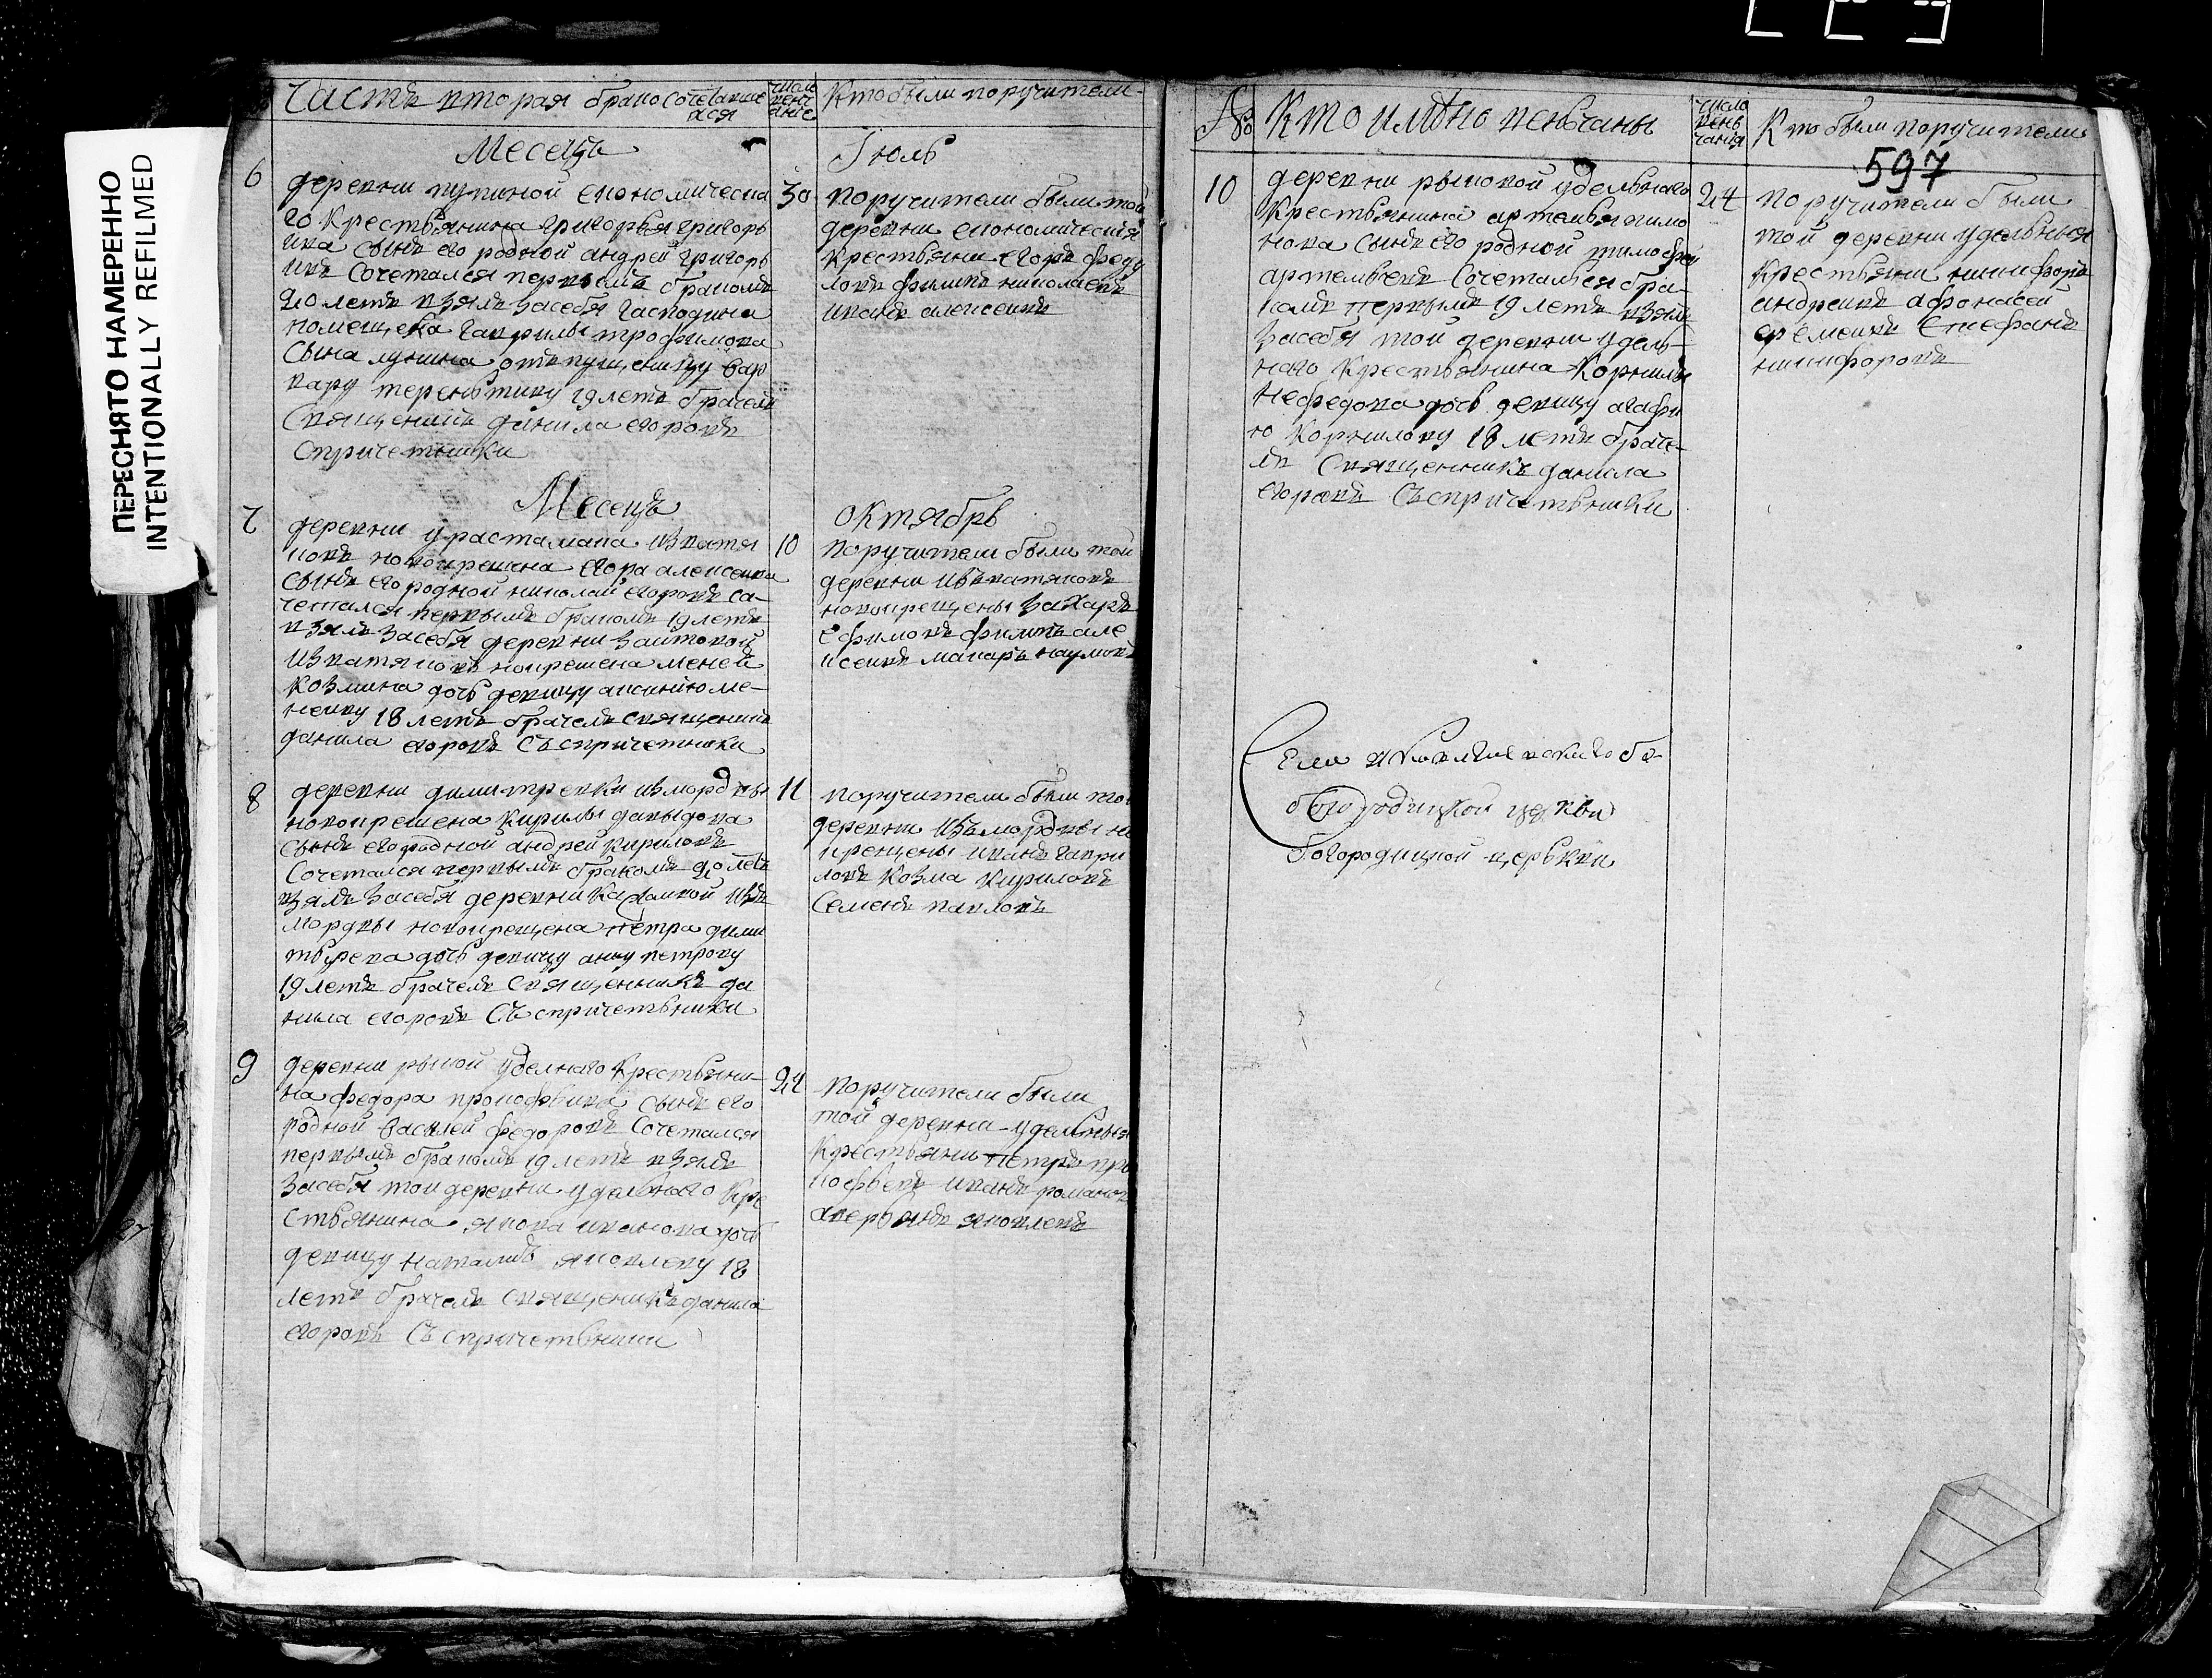 ПЕРЕСНЯТО НАМЕРЕННО
INTENTIONALLY REFILMED
Часть вторая бракосочетавше
яся
число
венч
Кто были поручители
Месецъ
Июль
6
деревни пупиной економическа
го Крестьянина григорья григорь
ива сынъ его родной андрей григорь
ивъ сочетался первымъ бракомъ
20 летъ взялъ засебя гасподина
помещека гаврилы трофимова
сына лунина отъпущеницу вар
вару терентиву 19 летъ брачелъ
священикъ данила егоровъ
спричетники
30
поручители были той
деревни економическия
крестьяни егоръ феду
ловъ филипъ николаевъ
иванъ алексеивъ
Месецъ
октябрь
7
деревни урастамака извотя
ковъ новокрешена егора алексеива
сынъ его родной николай егоровъ со
четался первымъ бракомъ 19 летъ
взялъ засебя деревни заитовой
извотяковъ новокрешена меней
козмина дочь девицу аксинию ме
нейву 18 летъ брачелъ священикъ
данила егоровъ съспричетники
10
поручители были той
деревни изъвотяковъ
новокрещены захаръ
ефимовъ филипъ але
ксеивъ макаръ наумовъ
8
деревни димитревки измордвы
новокрешена кирилы давыдова
сынъ его родной андрей кириловъ
сочетался первымъ бракомъ 20 летъ
взялъ засебя деревни изъ
мордвы новокрещена петра дими
тьрева дочь девицу анну петрову
19 летъ брачелъ священникъ да
нила егоровъ съспричетьники
11
поручители были той
деревни изъмордвы но
крещены иванъ гаври
ловъ козма кириловъ
семенъ павловъ
9
деревни уделнаго крестьяни
на федора прокофьива сынъ его
родной василей федоровъ сочетался
первымъ бракомъ 19 летъ взялъ
засебя той деревни удельнаго кре
стьянина якова иванова дочь
девицу наталию яковлеву 18
летъ брачелъ священикъ данила
егоровъ съспричетьники
24
поручители были
той деревни удельныя
крестьяни петръ про
кофьевъ иванъ романов
аверьянъ яковлевъ
№
Кто имяно веньчаны
число
вень
чания
Кто были поручители
597
10
деревни рыковой удельнаго
крестьянина артемья тимо
нова сынъ его родной тимофей
артемьевъ сочетался бра
комъ первымъ 19 летъ взялъ
засебя той деревни удель
наго крестьянина Корнилы
Нефедова дочь девицу агафи
ю корнилову 18 летъ браче
лъ священникъ данила
егоровъ съспричетьники
24
поручители были
той деревни удельныя
крестьяни никифоръ
андреивъ афонасей
еремеивъ Епефанъ
никифоровъ
богородицкой церкви
богородицкой церькви